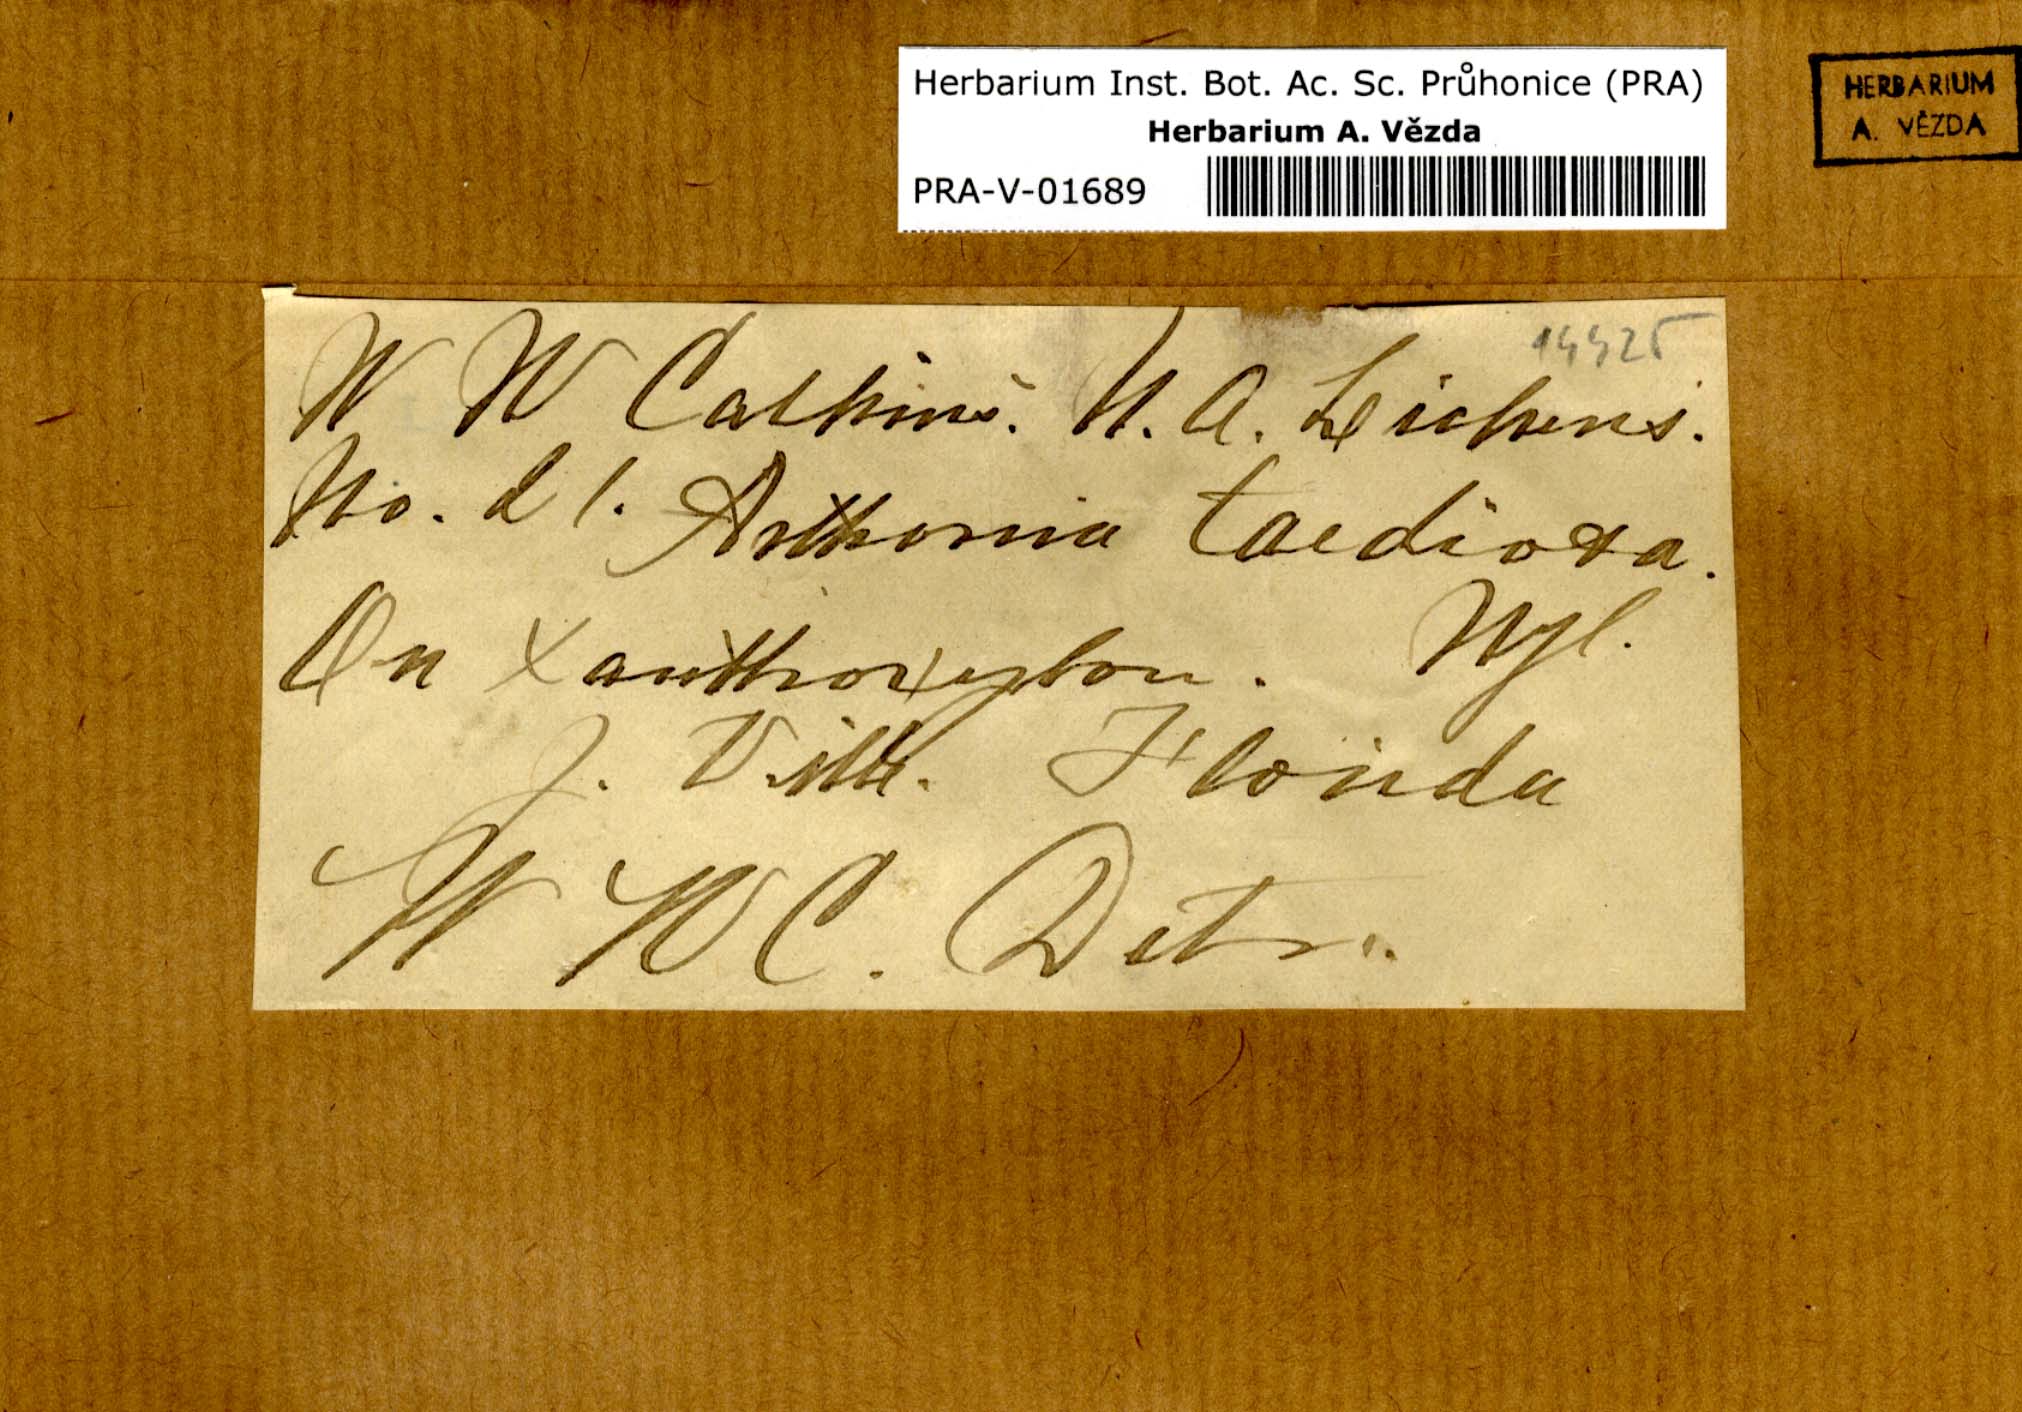 Herbarium Inst. Bot. Ac. Sc. Průhonice (PRA)
Herbarium A. Vězda
PRA-V-01689
HERBARIUM
A. VĚZDA
W W Calkins. N. A. Lichens.
No. 21. Arthonia taediosa.
On Xanthoxylon. Nyl.
J. Ville. Florida
W W C. Detr.